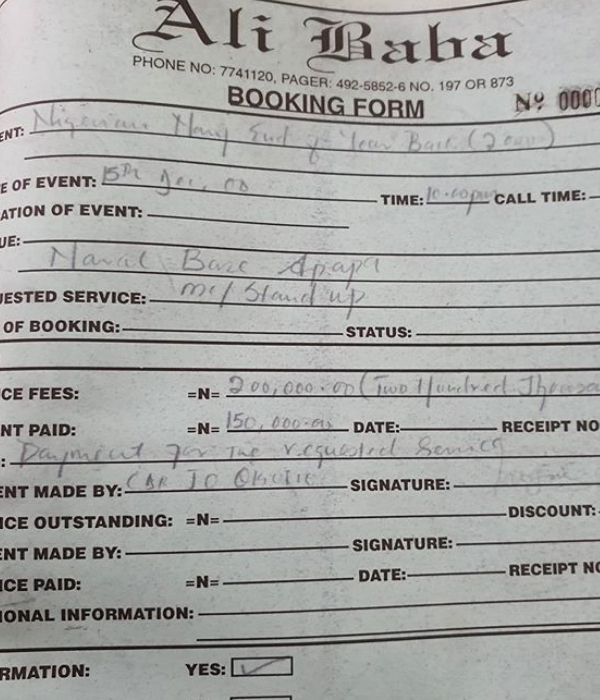 Ali Baba
PHONE NO: 7741120, PAGER: 492-5852-6 NO. 197 OR 873
BOOKING FORM Nº 0000
ENT: Nigerian Navy End of Year Bash (2000)
E OF EVENT: 15th Dec, 00 TIME: 10.00pm CALL TIME:
ATION OF EVENT:
UE:
Naval Base Apapa
UESTED SERVICE: mc/Stand up
OF BOOKING: STATUS:
CE FEES: =N= 200,000.00 (Two Hundred Thousa
NT PAID: =N= 150,000.00 DATE: RECEIPT NO
: Payment for the requested Service
ENT MADE BY: JO SIGNATURE:
CE OUTSTANDING: =N= DISCOUNT:
ENT MADE BY: SIGNATURE:
CE PAID: =N= DATE: RECEIPT NO
IONAL INFORMATION:
RMATION: YES: